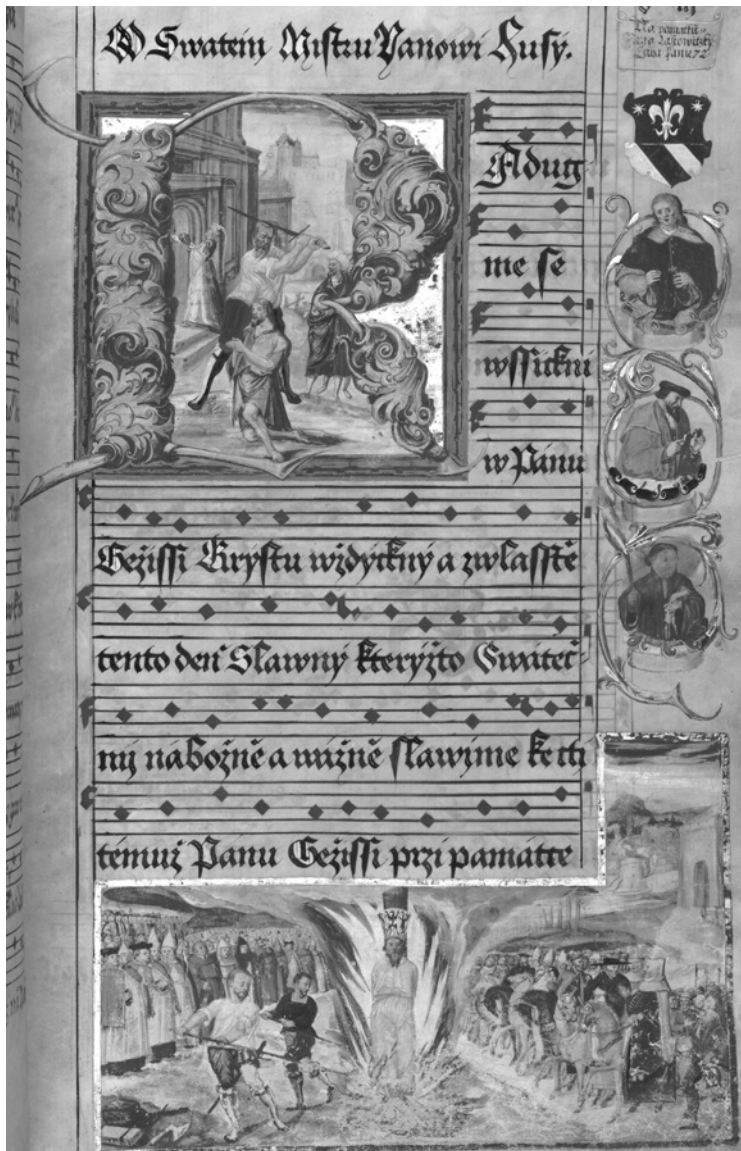 O Swatem Mistru Janowi Husy.
RAdug
me se
wssickni
w Pánu
Gežissi Krystu wždyckny a zwlasstě
tento deň Slawný kterýžto Swáteč-
ný nábožně a wážně slawjme ke cti
témuž Pánu Gežissi przi památce
Na památku